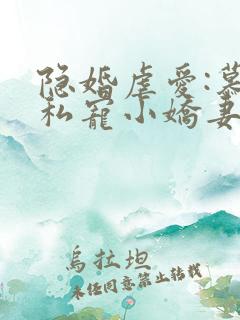 隐婚虐爱:慕
私宠小娇妻
乌拉坦
未经同意禁止转载